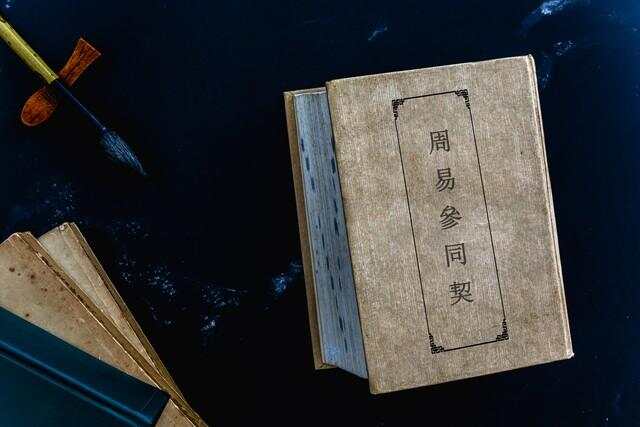 周易參同契